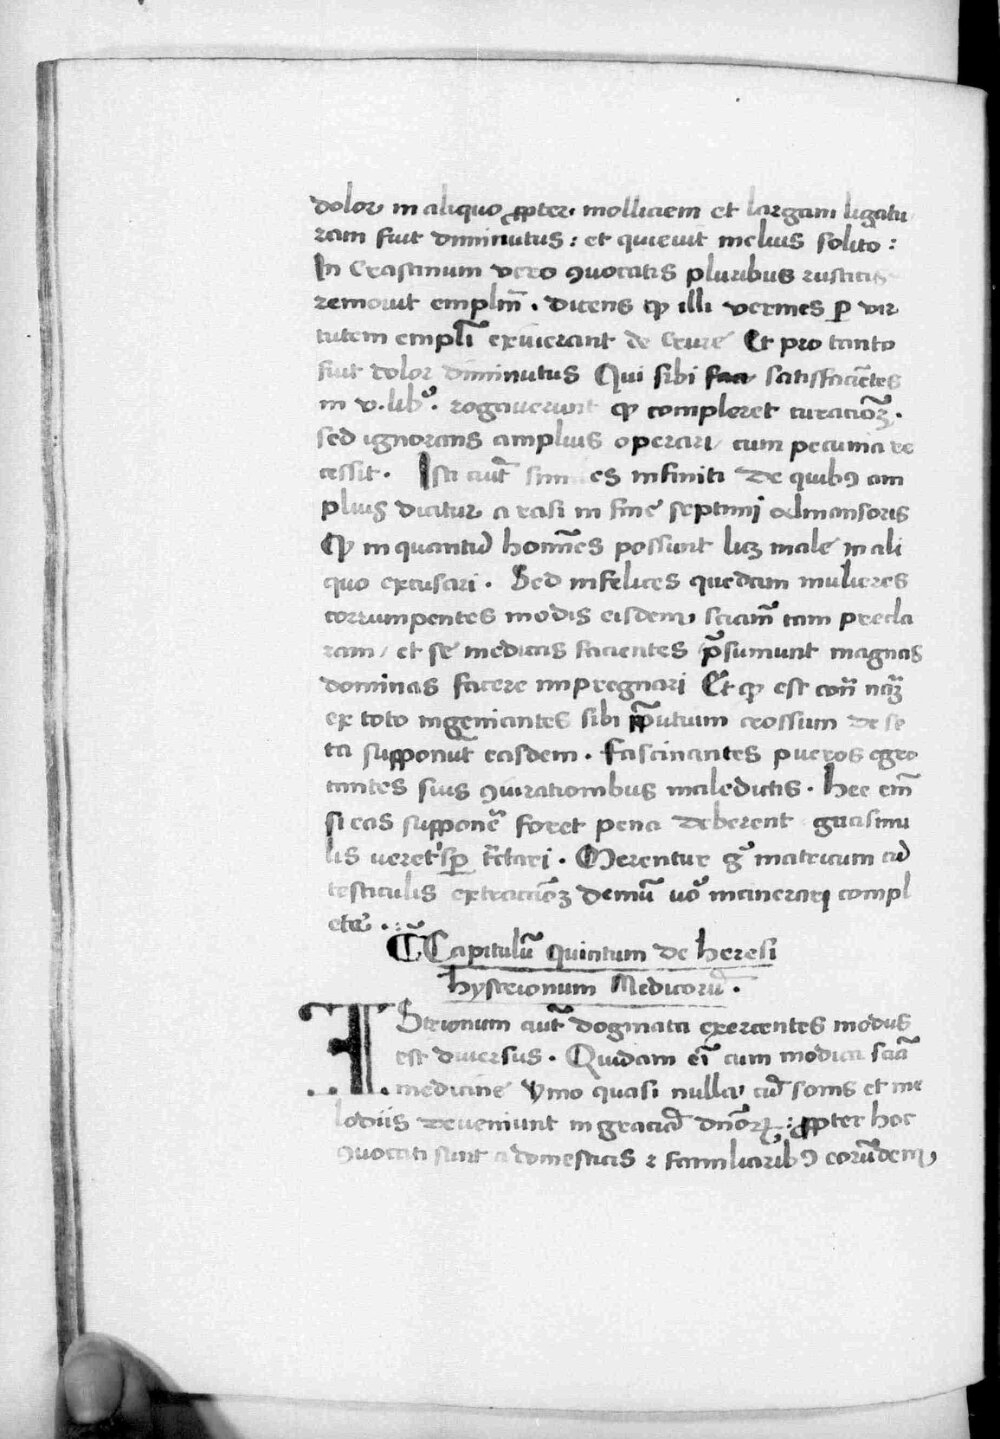 dolor in aliquo ꝓpter molliciem et largam ligatu
ram fuit diminutus : et quieuit melius solito :
In Crastinum vero ꝯuocatis pluribus rusticis
remouit emplm̅ . dicens ꝙ illi vermes ꝑ vir
tutem empli̅ exiuerant de Crure Et pro tanto
fuit dolor diminutus Qui sibi satisfacie̅tes
in v. lib᷒ . rogauerunt ꝙ compleret curacio̅ꝫ .
sed ignorans amplius operari / cum pecunia re
cessit . Isti aut̅ infiniti de quibꝯ am
plius dicitur a rasi in fine septimi almansoris
ꝙ in quantu̅ homi̅es possunt licꝫ male in ali
quo excusari . Sed infelices quedam mulieres
corrumpentes modis eisdem scia̅m tam precla
ram / et se medicas facientes p̅sumunt magnas
dominas facere impregnari Et ꝙ est con̅ na̅ꝫ
ex toto ingeniantes sibi crossum de se
ta supponu̅t easdem . fascinantes pueros egro
tantes suis ꝯiurationibus maledictis . hee em̅
si eas suppone̅ foret pena deberent quasimu
lis Merentur g᷒ matricum cu̅
testiculis extractio̅ꝫ demu̅ uo᷒ incinerari compl
ete .
¶ Capitulu̅ Quintum de heresi
hystrionum Medicoru̅ .
IStrionum aut̅ dogmata exercentes modus
est diuersus . Quidam ei̅ cum modica scia̅
medicine ymo quasi nulla / cu̅ sonis et me
lodiis deueniunt in gracia̅ dn̅oꝝ : ꝓpter hoc
ꝯuocati sunt a domesticis ⁊ familiaribꝯ coru̅dem,